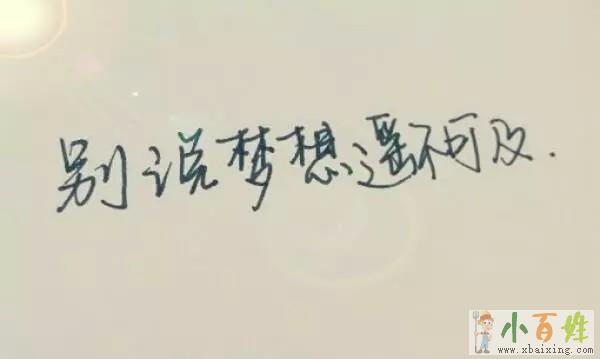 别说梦想遥不可及.
小百姓
www.xbaixing.com